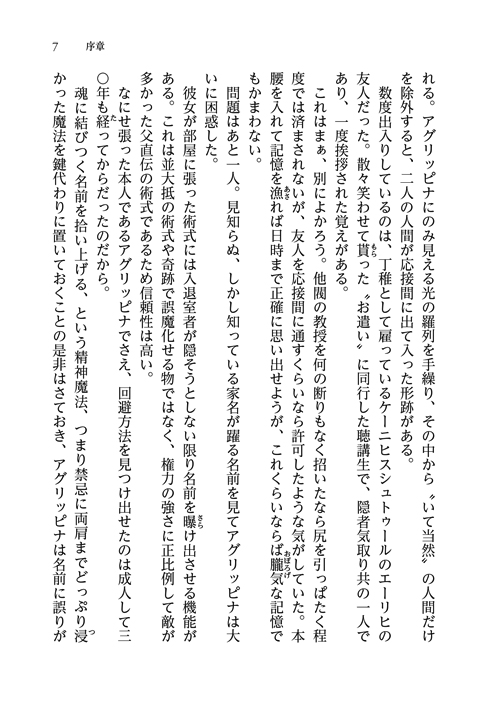 7　序章
れる。アグリッピナにのみ見える光の羅列を手繰り、その中から〝いて当然〟の人間だけ
を除外すると、二人の人間が応接間に出て入った形跡がある。
　数度出入りしているのは、丁稚として雇っているケーニヒスシュトゥールのエーリヒの
友人だった。散々笑わせて貰った〝お遣い〟に同行した聴講生で、隠者気取り共の一人で
あり、一度挨拶された覚えがある。
　これはまぁ、別によかろう。他閥の教授を何の断りもなく招いたなら尻を引っぱたく程
度では済まされないが、友人を応接間に通すくらいなら許可したような気がしていた。本
腰を入れて記憶を漁れば日時まで正確に思い出せようが、これくらいならば朧気な記憶で
もかまわない。
　問題はあと一人。見知らぬ、しかし知っている家名が躍る名前を見てアグリッピナは大
いに困惑した。
　彼女が部屋に張った術式には入退室者が隠そうとしない限り名前を曝け出させる機能が
ある。これは並大抵の術式や奇跡で誤魔化せる物ではなく、権力の強さに正比例して敵が
多かった父直伝の術式であるため信頼性は高い。
　なにせ張った本人であるアグリッピナでさえ、回避方法を見つけ出せたのは成人して三
〇年も経ってからだったのだから。
　魂に結びつく名前を拾い上げる、という精神魔法、つまり禁忌に両肩までどっぷり浸
かった魔法を鍵代わりに置いておくことの是非はさておき、アグリッピナは名前に誤りが